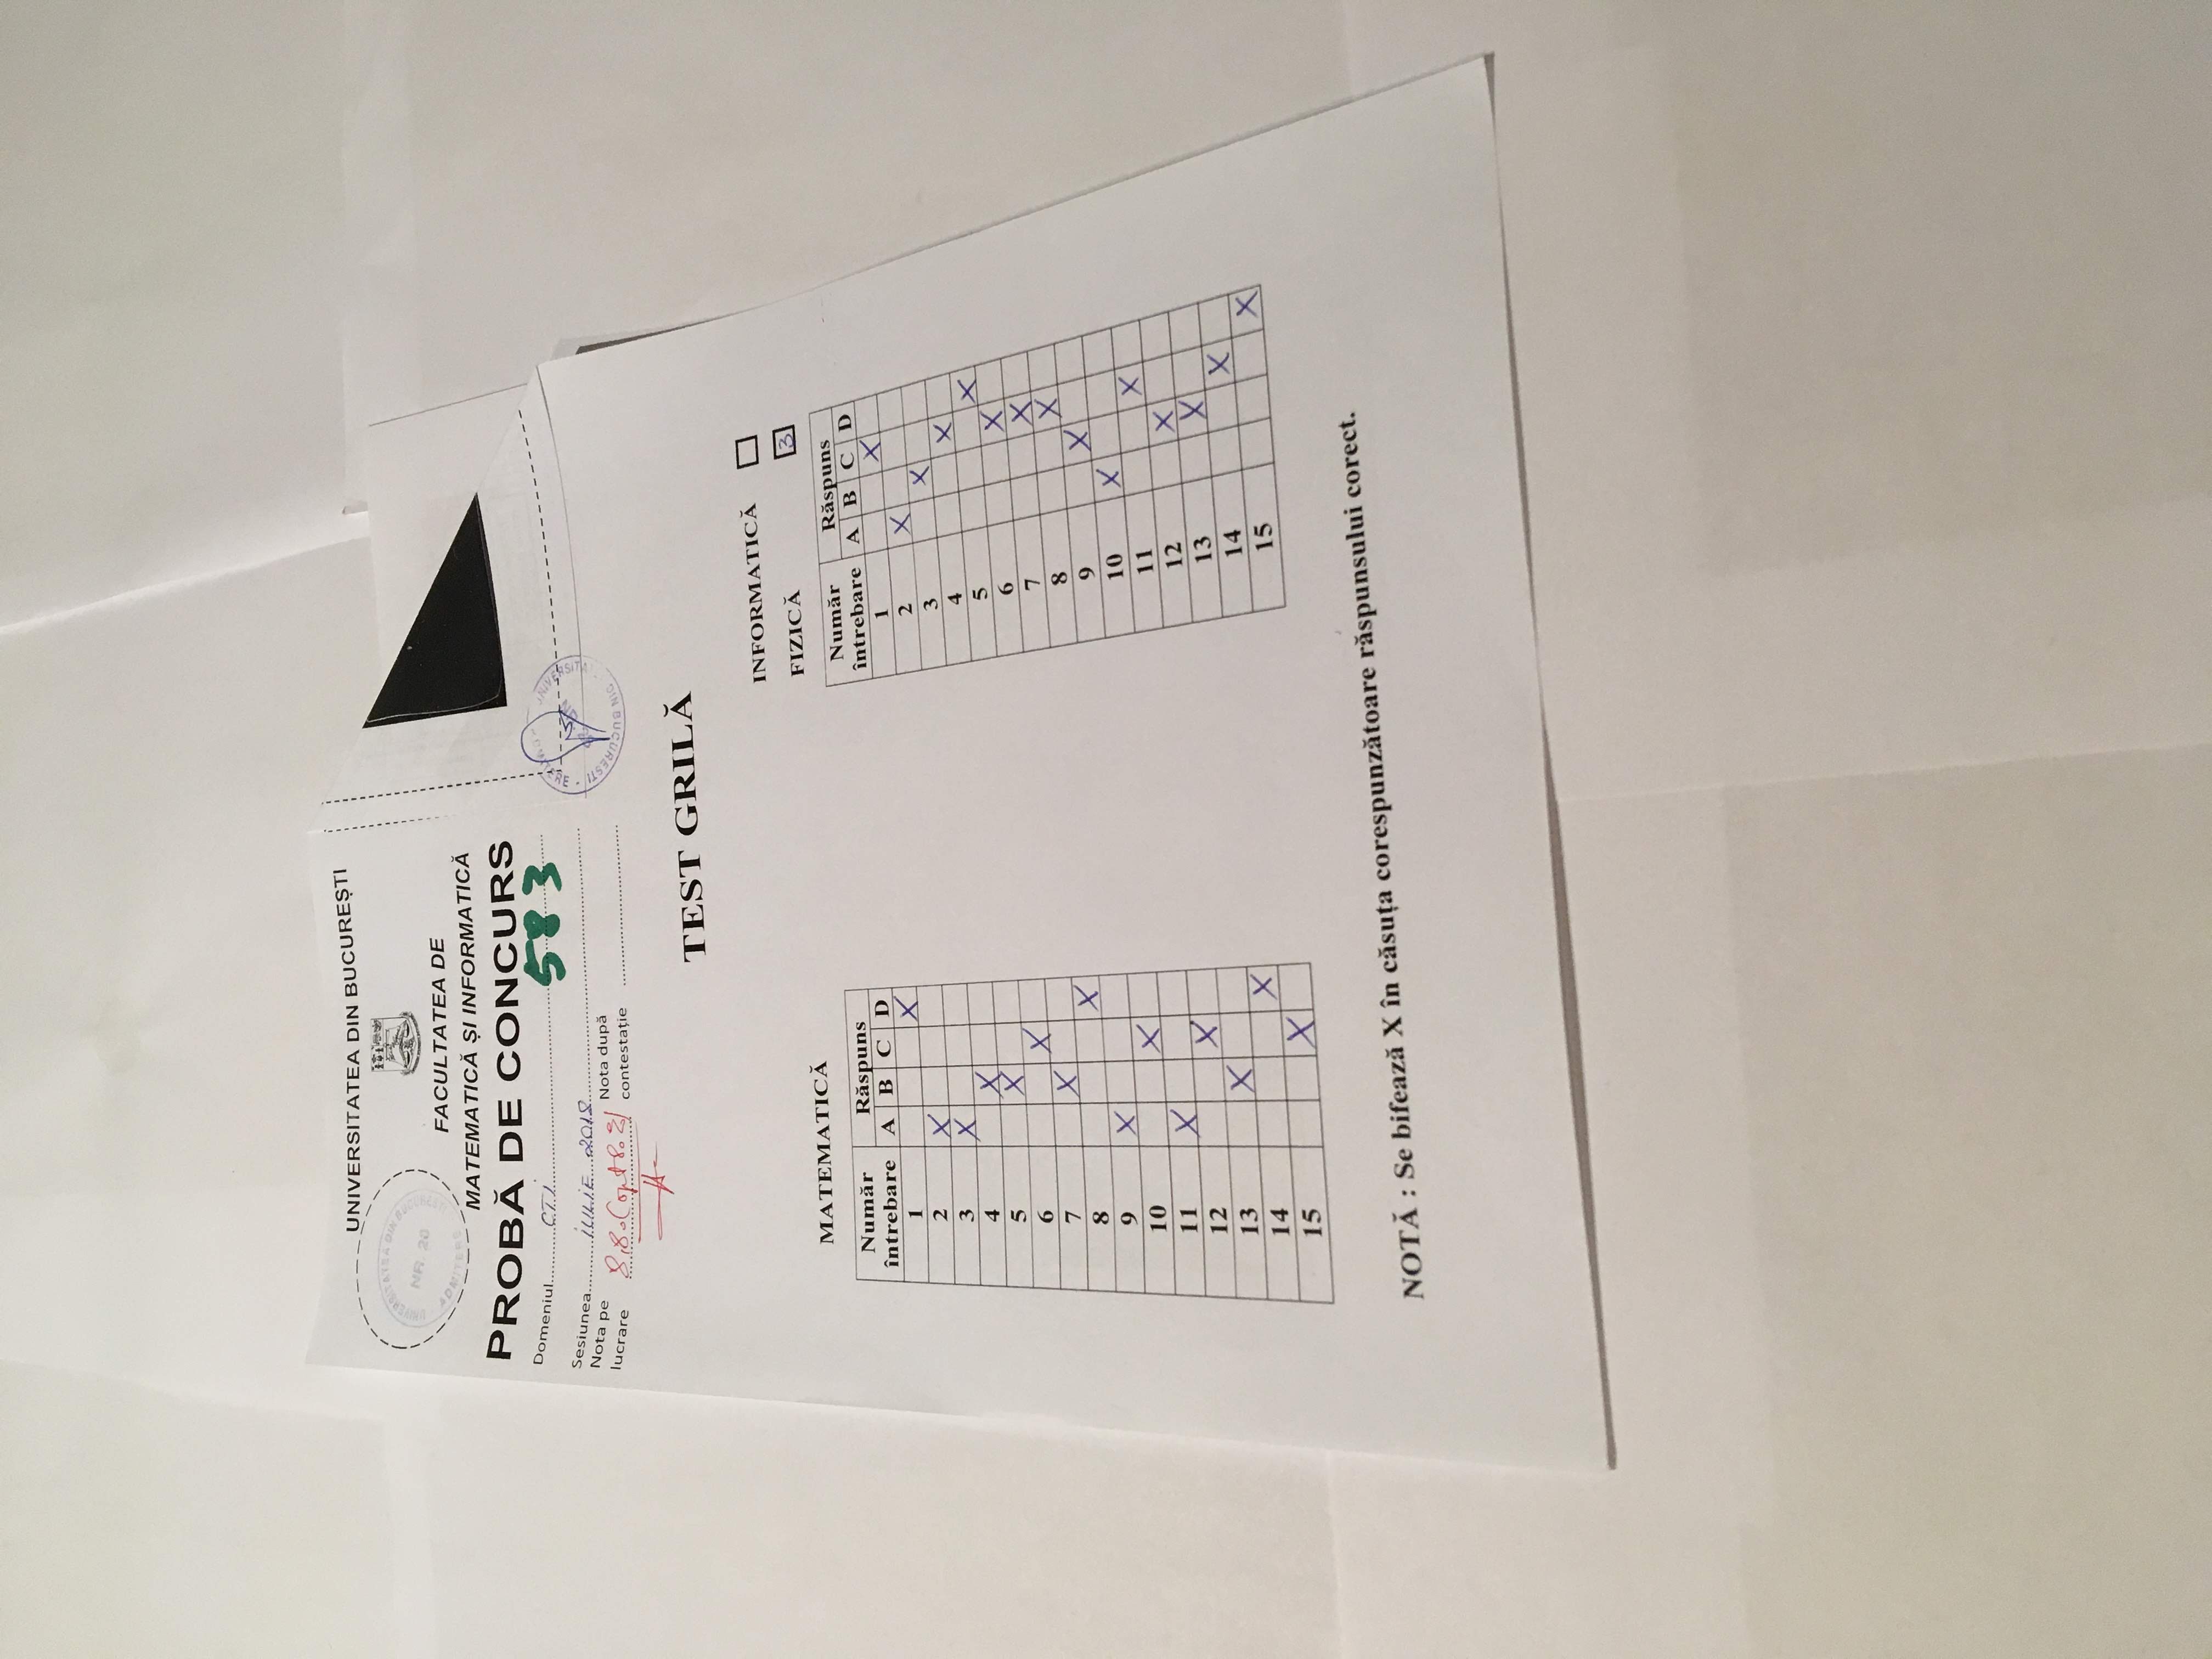 UNIVERSITATEA DIN BUCUREȘTI
UNIVERSITATEA DIN BUCUREȘTI
NR. 20
ADMITERE
FACULTATEA DE
MATEMATICĂ ȘI INFORMATICĂ
PROBĂ DE CONCURS
Domeniul CTI
583
Sesiunea iULIE 2018
Nota pe
lucrare 8,80 (opt 80%)
Nota după
contestație
UNIVERSITATEA DIN BUCUREȘTI
TEST GRILĂ
INFORMATICĂ
FIZICĂ 3
MATEMATICĂ
Număr
întrebare
Răspuns
A B C D
1 X
2 X
3 X
4 X
5 X
6 X
7 X
8 X
9 X
10 X
11 X
12 X
13 X
14 X
15 X
Număr
întrebare
Răspuns
A B C D
1 X
2 X
3 X
4 X
5 X
6 X
7 X
8 X
9 X
10 X
11 X
12 X
13 X
14 X
15 X
NOTĂ : Se bifează X în căsuța corespunzătoare răspunsului corect.